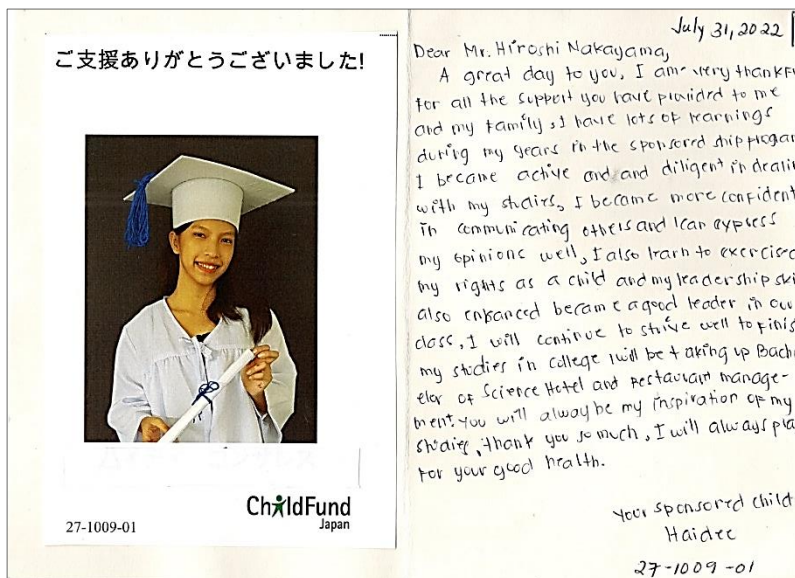 ご支援ありがとうございました!
ChildFund
Japan
27-1009-01
July 31, 2022
Dear Mr. Hiroshi Nakayama,
A great day to you, I am very thankf
for all the support you have provided to me
and my family, I have lots of learnings
during my years in the sponsored ship program
I became active and and diligent in dealin
with my studies, I became more confident
in communicating others and I can express
my opinions well, I also learn to exercised
my rights as a child and my leadership ski
also enhanced became a good leader in our
class, I will continue to strive well to finis
my studies in college I will be taking up Bach
elor of Science Hotel and Restaurant manage-
ment. You will alway be my inspiration of my
studies, thank you so much, I will always pra
for your good health.
Your sponsored child
Haidee
27-1009-01